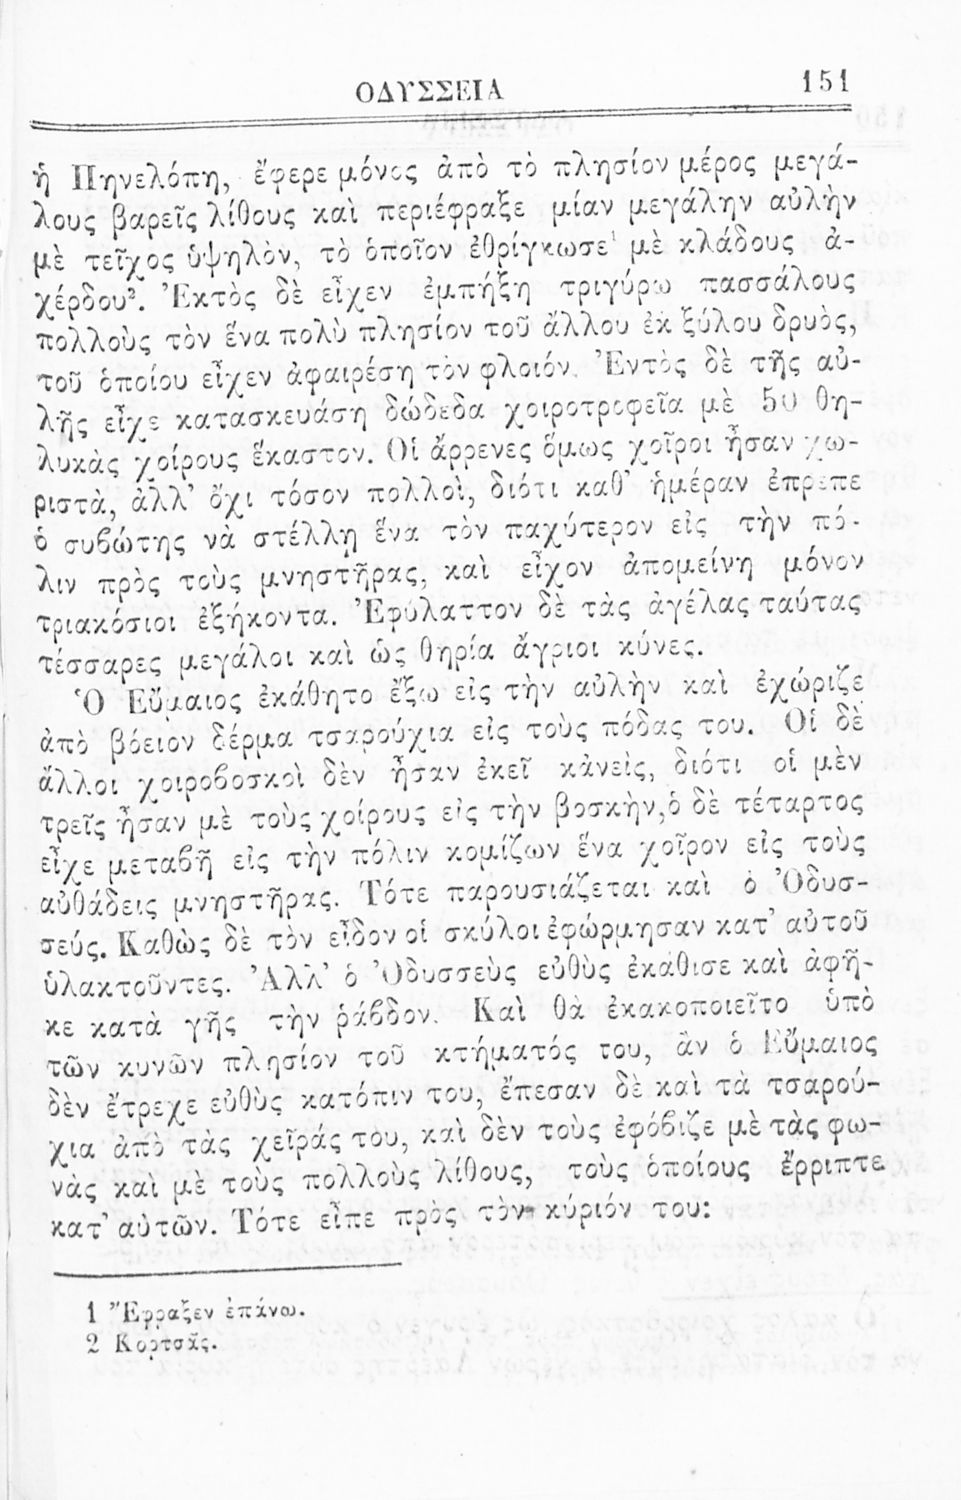 ΟΔΥΣΣΕΙΑ 151
ἡ Πηνελόπη, ἔφερε μόνος ἀπὸ τὸ πλησίον μέρος μεγά-
λους βαρεῖς λίθους καὶ περιέφραξε μίαν μεγάλην αὐλὴν
μὲ τεῖχος ὑψηλὸν, τὸ ὁποῖον ἐθρίγκωσε¹ μὲ κλάδους ἀ-
χέρδου². Ἐκτὸς δὲ εἶχεν ἐμπήξῃ τριγύρω πασσάλους
πολλοὺς τὸν ἕνα πολὺ πλησίον τοῦ ἄλλου ἐκ ξύλου δρυὸς,
τοῦ ὁποίου εἶχεν ἀφαιρέσῃ τὸν φλοιόν. Ἐντὸς δὲ τῆς αὐ-
λῆς εἶχε κατασκευάσῃ δώδεδα χοιροτροφεῖα μὲ 50 θη-
λυκὰς χοίρους ἕκαστον. Οἱ ἄρρενες ὅμως χοῖροι ἦσαν χω-
ριστὰ, ἀλλ’ ὄχι τόσον πολλοὶ, διότι καθ’ ἡμέραν ἐπρεπε
ὁ συβώτης νὰ στέλλῃ ἕνα τὸν παχύτερον εἰς τὴν πό-
λιν πρὸς τοὺς μνηστῆρας, καὶ εἶχον ἀπομείνῃ μόνον
τριακόσιοι ἑξήκοντα. Ἐφύλαττον δὲ τὰς ἀγέλας ταύτας
τέσσαρες μεγάλοι καὶ ὡς θηρία ἄγριοι κύνες.
Ὁ Εὔμαιος ἐκάθητο ἔξω εἰς τὴν αὐλὴν καὶ ἐχώριζε
ἀπὸ βόειον δέρμα τσαρούχια εἰς τοὺς πόδας του. Οἱ δὲ
ἄλλοι χοιροβοσκοὶ δὲν ἦσαν ἐκεῖ κἀνεὶς, διότι οἱ μὲν
τρεῖς ἦσαν μὲ τοὺς χοίρους εἰς τὴν βοσκὴν, ὁ δὲ τέταρτος
εἶχε μεταβῆ εἰς τὴν πόλιν κομίζων ἕνα χοῖρον εἰς τοὺς
αὐθάδεις μνηστῆρας. Τότε παρουσιάζεται καὶ ὁ Ὀδυσ-
σεύς. Καθὼς δὲ τὸν εἶδον οἱ σκύλοι ἐφώρμησαν κατ’ αὐτοῦ
ὑλακτοῦντες. Ἀλλ’ ὁ Ὀδυσσεὺς εὐθὺς ἐκάθισε καὶ ἀφῆ-
κε κατὰ γῆς τὴν ῥάβδον. Καὶ θὰ ἐκακοποιεῖτο ὑπὸ
τῶν κυνῶν πλησίον τοῦ κτήματός του, ἂν ὁ Εὔμαιος
δὲν ἔτρεχε εὐθὺς κατόπιν του, ἔπεσαν δὲ καὶ τὰ τσαρού-
χια ἀπὸ τὰς χεῖράς του, καὶ δὲν τοὺς ἐφόβιζε μὲ τὰς φω-
νὰς καὶ μὲ τοὺς πολλοὺς λίθους, τοὺς ὁποίους ἔρριπτε
κατ’ αὐτῶν. Τότε εἶπε πρὸς τὸν κύριόν του:
1 Ἔφραξεν ἐπάνω.
2 Κορτσᾶς.